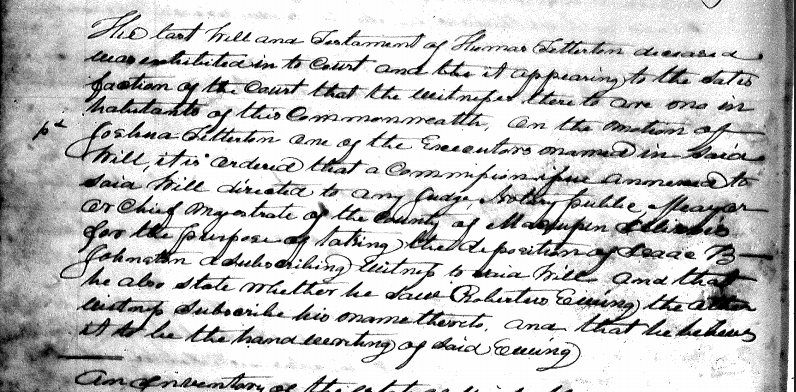 The last Will and Testament of Thomas Tetterton deceased
was exhibited in to Court and the it appearing to the satis
faction of the Court that the witnesses there to are one in
habitants of this Commonwealth, on the motion of
Joshua Tetterton one of the Executors named in said
Will, it is ordered that a Commission issue annexed to
said Will directed to any Judge, Notary public, Mayor
or Chief Magestrate of the County of Macoupin Illinois
for the purpose of taking the deposition of Isaac B
Johnston a subscribing witness to said Will and that
he also state whether he saw Ewing the other
witness subscribe his name thereto, and that he believes
it to be the hand writing of said Ewing
An Inventory of the